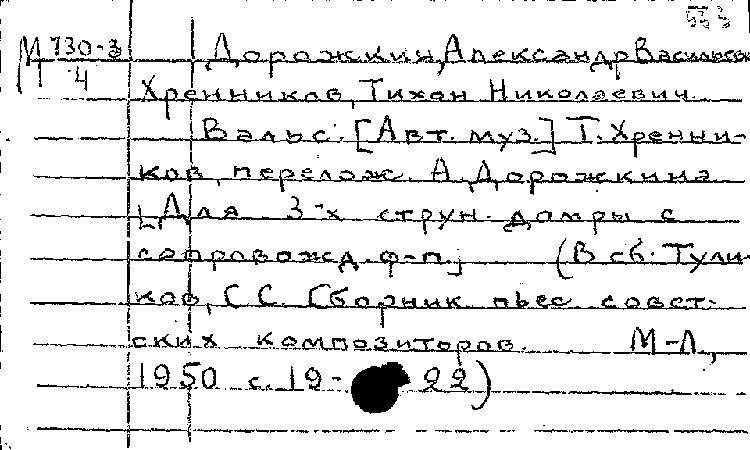 553
М 730-3 Дорожкин, Александр Васильевич
4
Хренников, Тихон Николаевич
Вальс. [Авт. муз.] Т. Хренни-
ков, перелож. А. Дорожкина
[Для 3-х струн. домры с
сопровожд. ф-п.] (В сб. Тули-
ков, С С. Сборник пьес совет-
ских композиторов. М-Л,
1950 с. 19- 22)